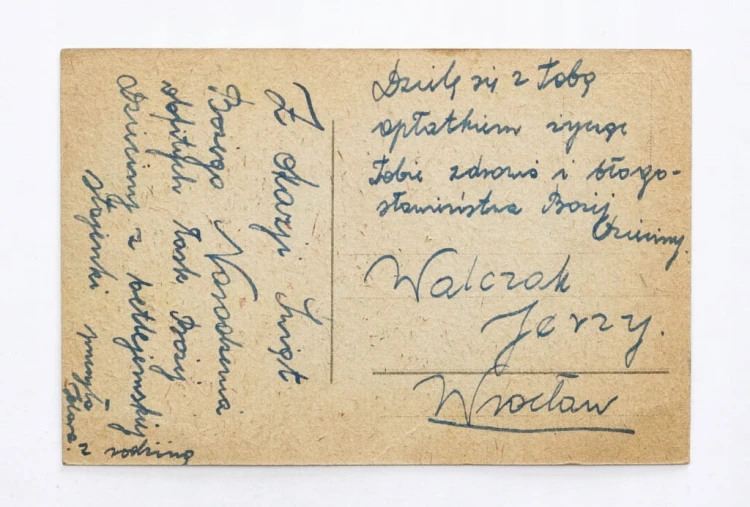 Z okazji Świąt
Bożego Narodzenia
obfitych łask Bożej
Dzieciny z betlejemskiej
stajenki
z rodziną
Dzielę się z Tobą
opłatkiem życzę
Tobie zdrowia i błogo-
sławieństwa Bożij
Dzieciny.
Walczak
Jerzy.
Wrocław